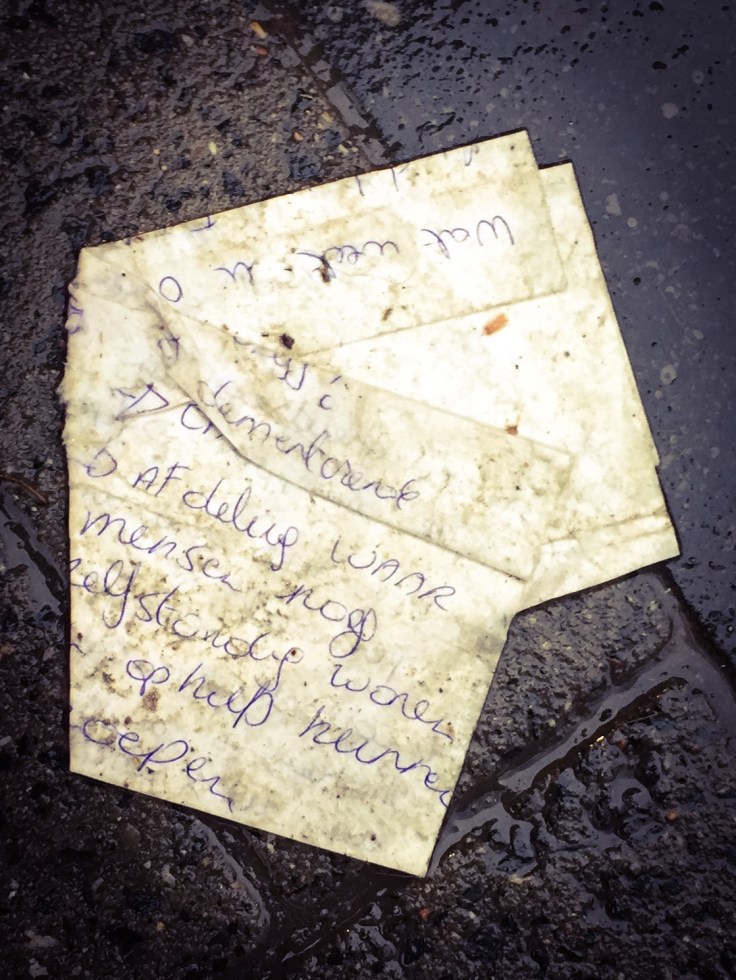 Wat weet u
dementerende
AFdeling WAAR
mensen nog
zelfstandig wonen
op hulp kunnen
oepen